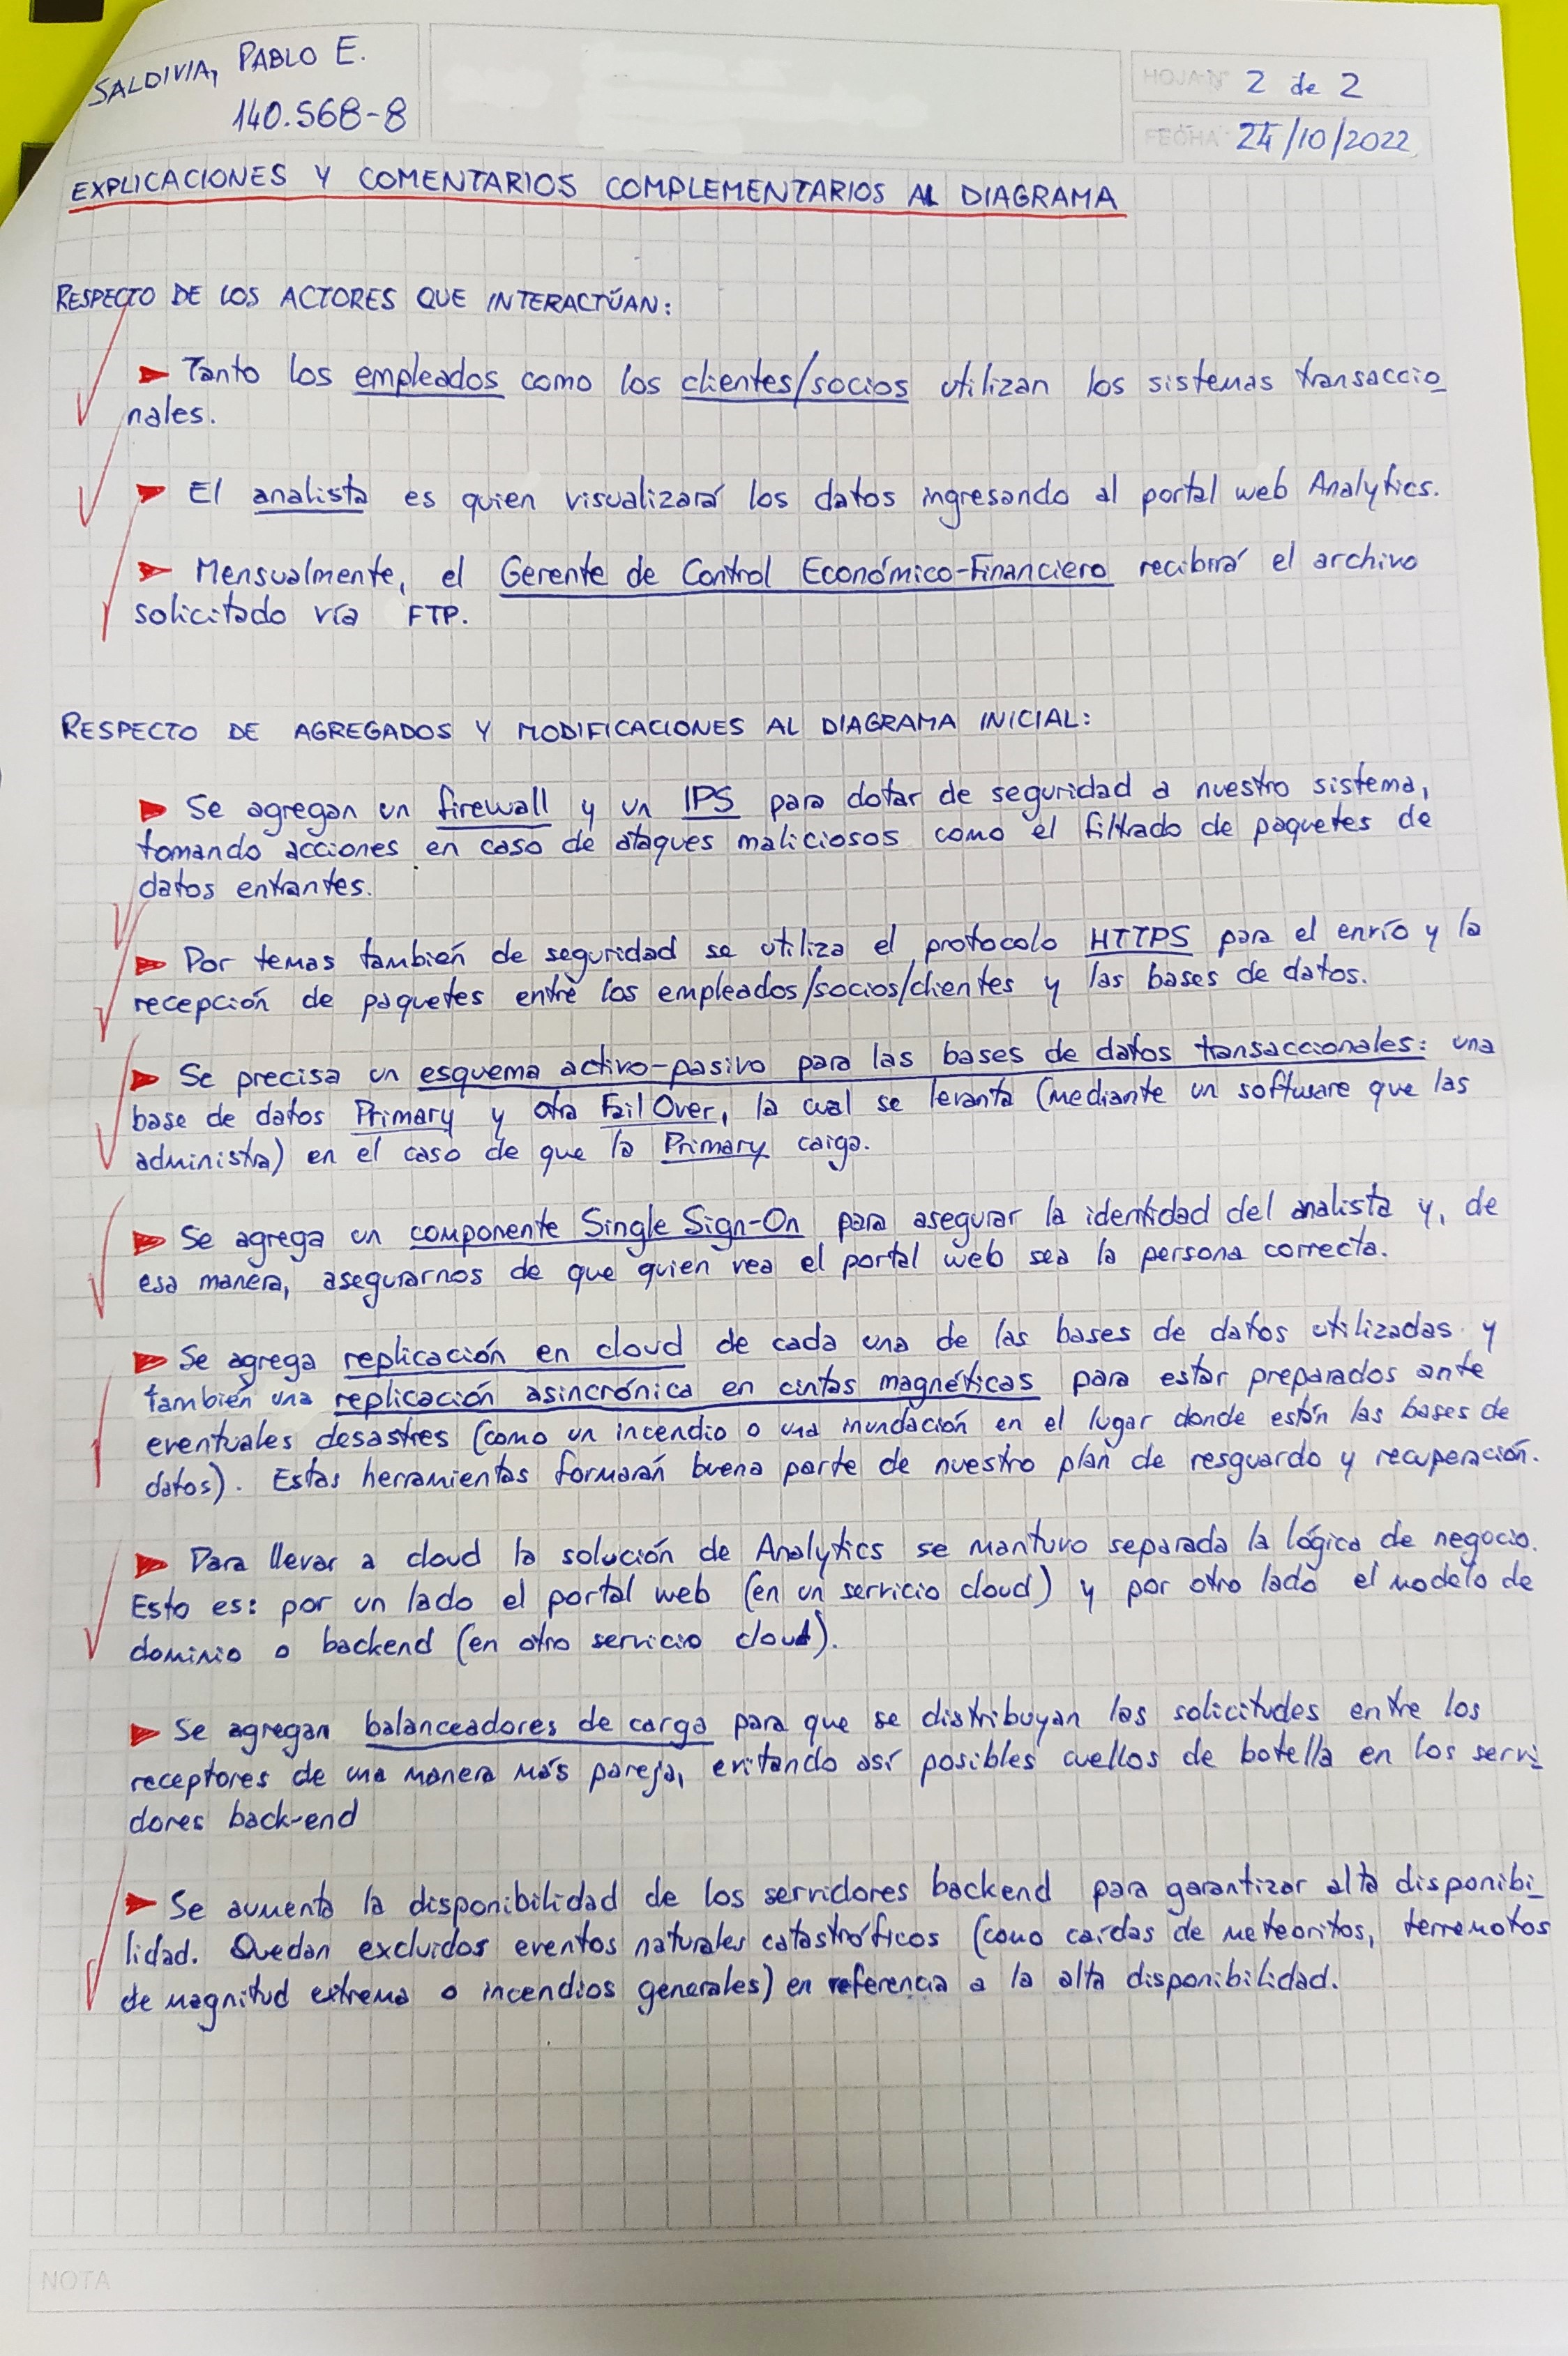 SALDIVIA, PABLO E.
140.568-8
HOJA Nº 2 de 2
FECHA 24/10/2022
EXPLICACIONES Y COMENTARIOS COMPLEMENTARIOS AL DIAGRAMA
RESPECTO DE LOS ACTORES QUE INTERACTÚAN:
Tanto los empleados como los clientes/socios utilizan los sistemas transaccio
nales.
El analista es quien visualizará los datos ingresando al portal web Analytics.
Mensualmente, el Gerente de Control Económico-Financiero recibirá el archivo
solicitado vía FTP.
RESPECTO DE AGREGADOS Y MODIFICACIONES AL DIAGRAMA INICIAL:
Se agregan un firewall y un IPS para dotar de seguridad a nuestro sistema,
tomando acciones en caso de ataques maliciosos como el filtrado de paquetes de
datos entrantes.
Por temas también de seguridad se utiliza el protocolo HTTPS para el envío y la
recepción de paquetes entre los empleados/socios/clientes y las bases de datos.
Se precisa un esquema activo-pasivo para las bases de datos transaccionales: una
base de datos Primary y otra FailOver, la cual se levanta (mediante un software que las
administra) en el caso de que la Primary caiga.
Se agrega un componente Single Sign-On para asegurar la identidad del analista y, de
esa manera, asegurarnos de que quien vea el portal web sea la persona correcta.
Se agrega replicación en cloud de cada una de las bases de datos utilizadas y
también una replicación asincrónica en cintas magnéticas para estar preparados ante
eventuales desastres (como un incendio o una inundación en el lugar donde están las bases de
datos). Estas herramientas formarán buena parte de nuestro plan de resguardo y recuperación.
Para llevar a cloud la solución de Analytics se mantuvo separada la lógica de negocio.
Esto es: por un lado el portal web (en un servicio cloud) y por otro lado el modelo de
dominio o backend (en otro servicio cloud).
Se agregan balanceadores de carga para que se distribuyan las solicitudes entre los
receptores de una manera más pareja, evitando así posibles cuellos de botella en los servi
dores back-end
Se aumenta la disponibilidad de los servidores backend para garantizar alta disponibi
lidad. Quedan excluidos eventos naturales catastróficos (como caídas de meteoritos, terremotos
de magnitud extrema o incendios generales) en referencia a la alta disponibilidad.
NOTA